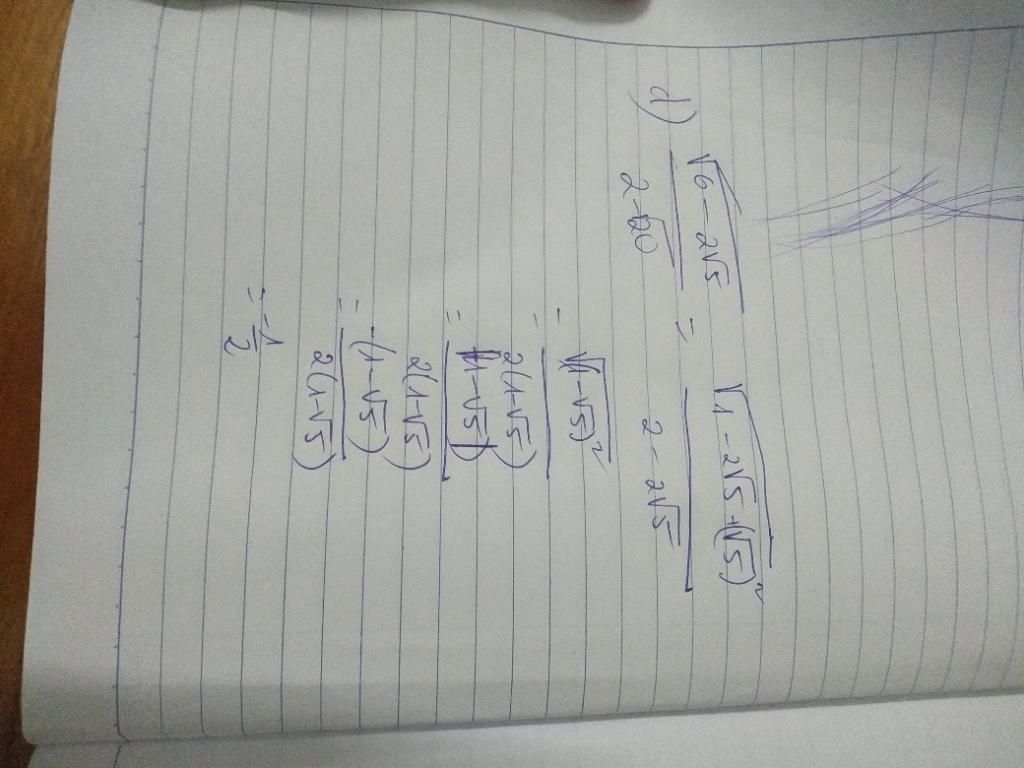 d) \frac{\sqrt{6-2\sqrt{5}}}{2-\sqrt{20}} = \frac{\sqrt{1-2\sqrt{5}+(\sqrt{5})^2}}{2-2\sqrt{5}}
= \frac{\sqrt{(1-\sqrt{5})^2}}{2(1-\sqrt{5})}
= \frac{|1-\sqrt{5}|}{2(1-\sqrt{5})}
= \frac{-(1-\sqrt{5})}{2(1-\sqrt{5})}
= \frac{-1}{2}